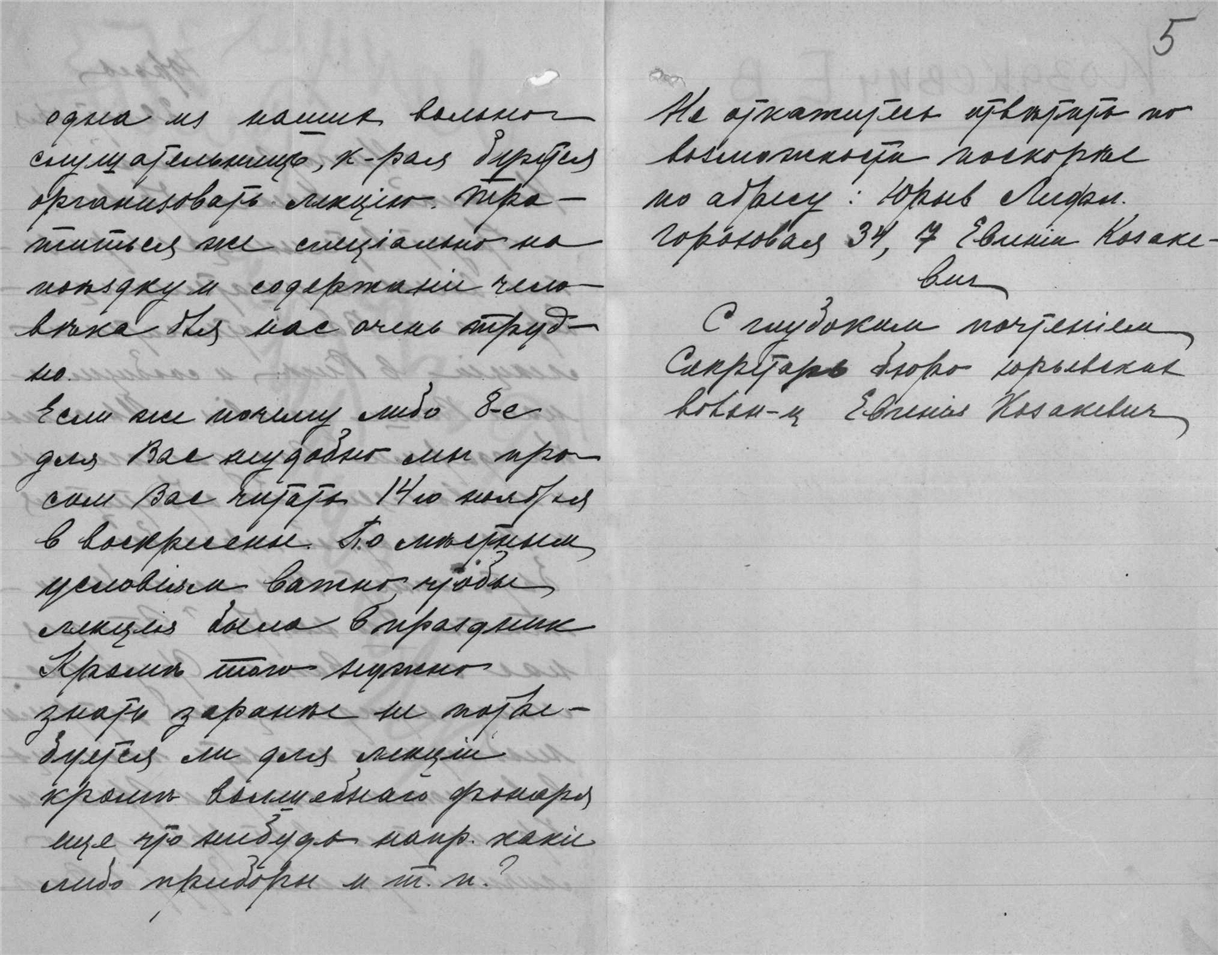 одна из наших вольно-
слушательниц, к-рая берется
организовать лекцию. Тра-
титься же спецiально на
поѣздку и содержанiе чело-
вѣка для нас очень труд-
но.
Если же почему либо 8-е
для Вас неудобно мы про-
сим Вас читать 14го ноября
в воскресенье. По мѣстным
условiям важно, чтобы
лекция была в праздник
Кромѣ того нужно
знать заранѣе не потре-
буется ли для лекцiи
кромѣ волшебнаго фонаря
еще что нибудь напр. какiе
либо приборы и т. п.?
5
Не откажитесь отвѣтить по
возможности поскорѣе
по адресу: Юрьев Лифл.
Гороховая 34, 7 Евгенiи Козаке-
вич
С глубоким почтенiем
Секретарь бюро юрьевских
вольн-ц Евгенiя Козакевич